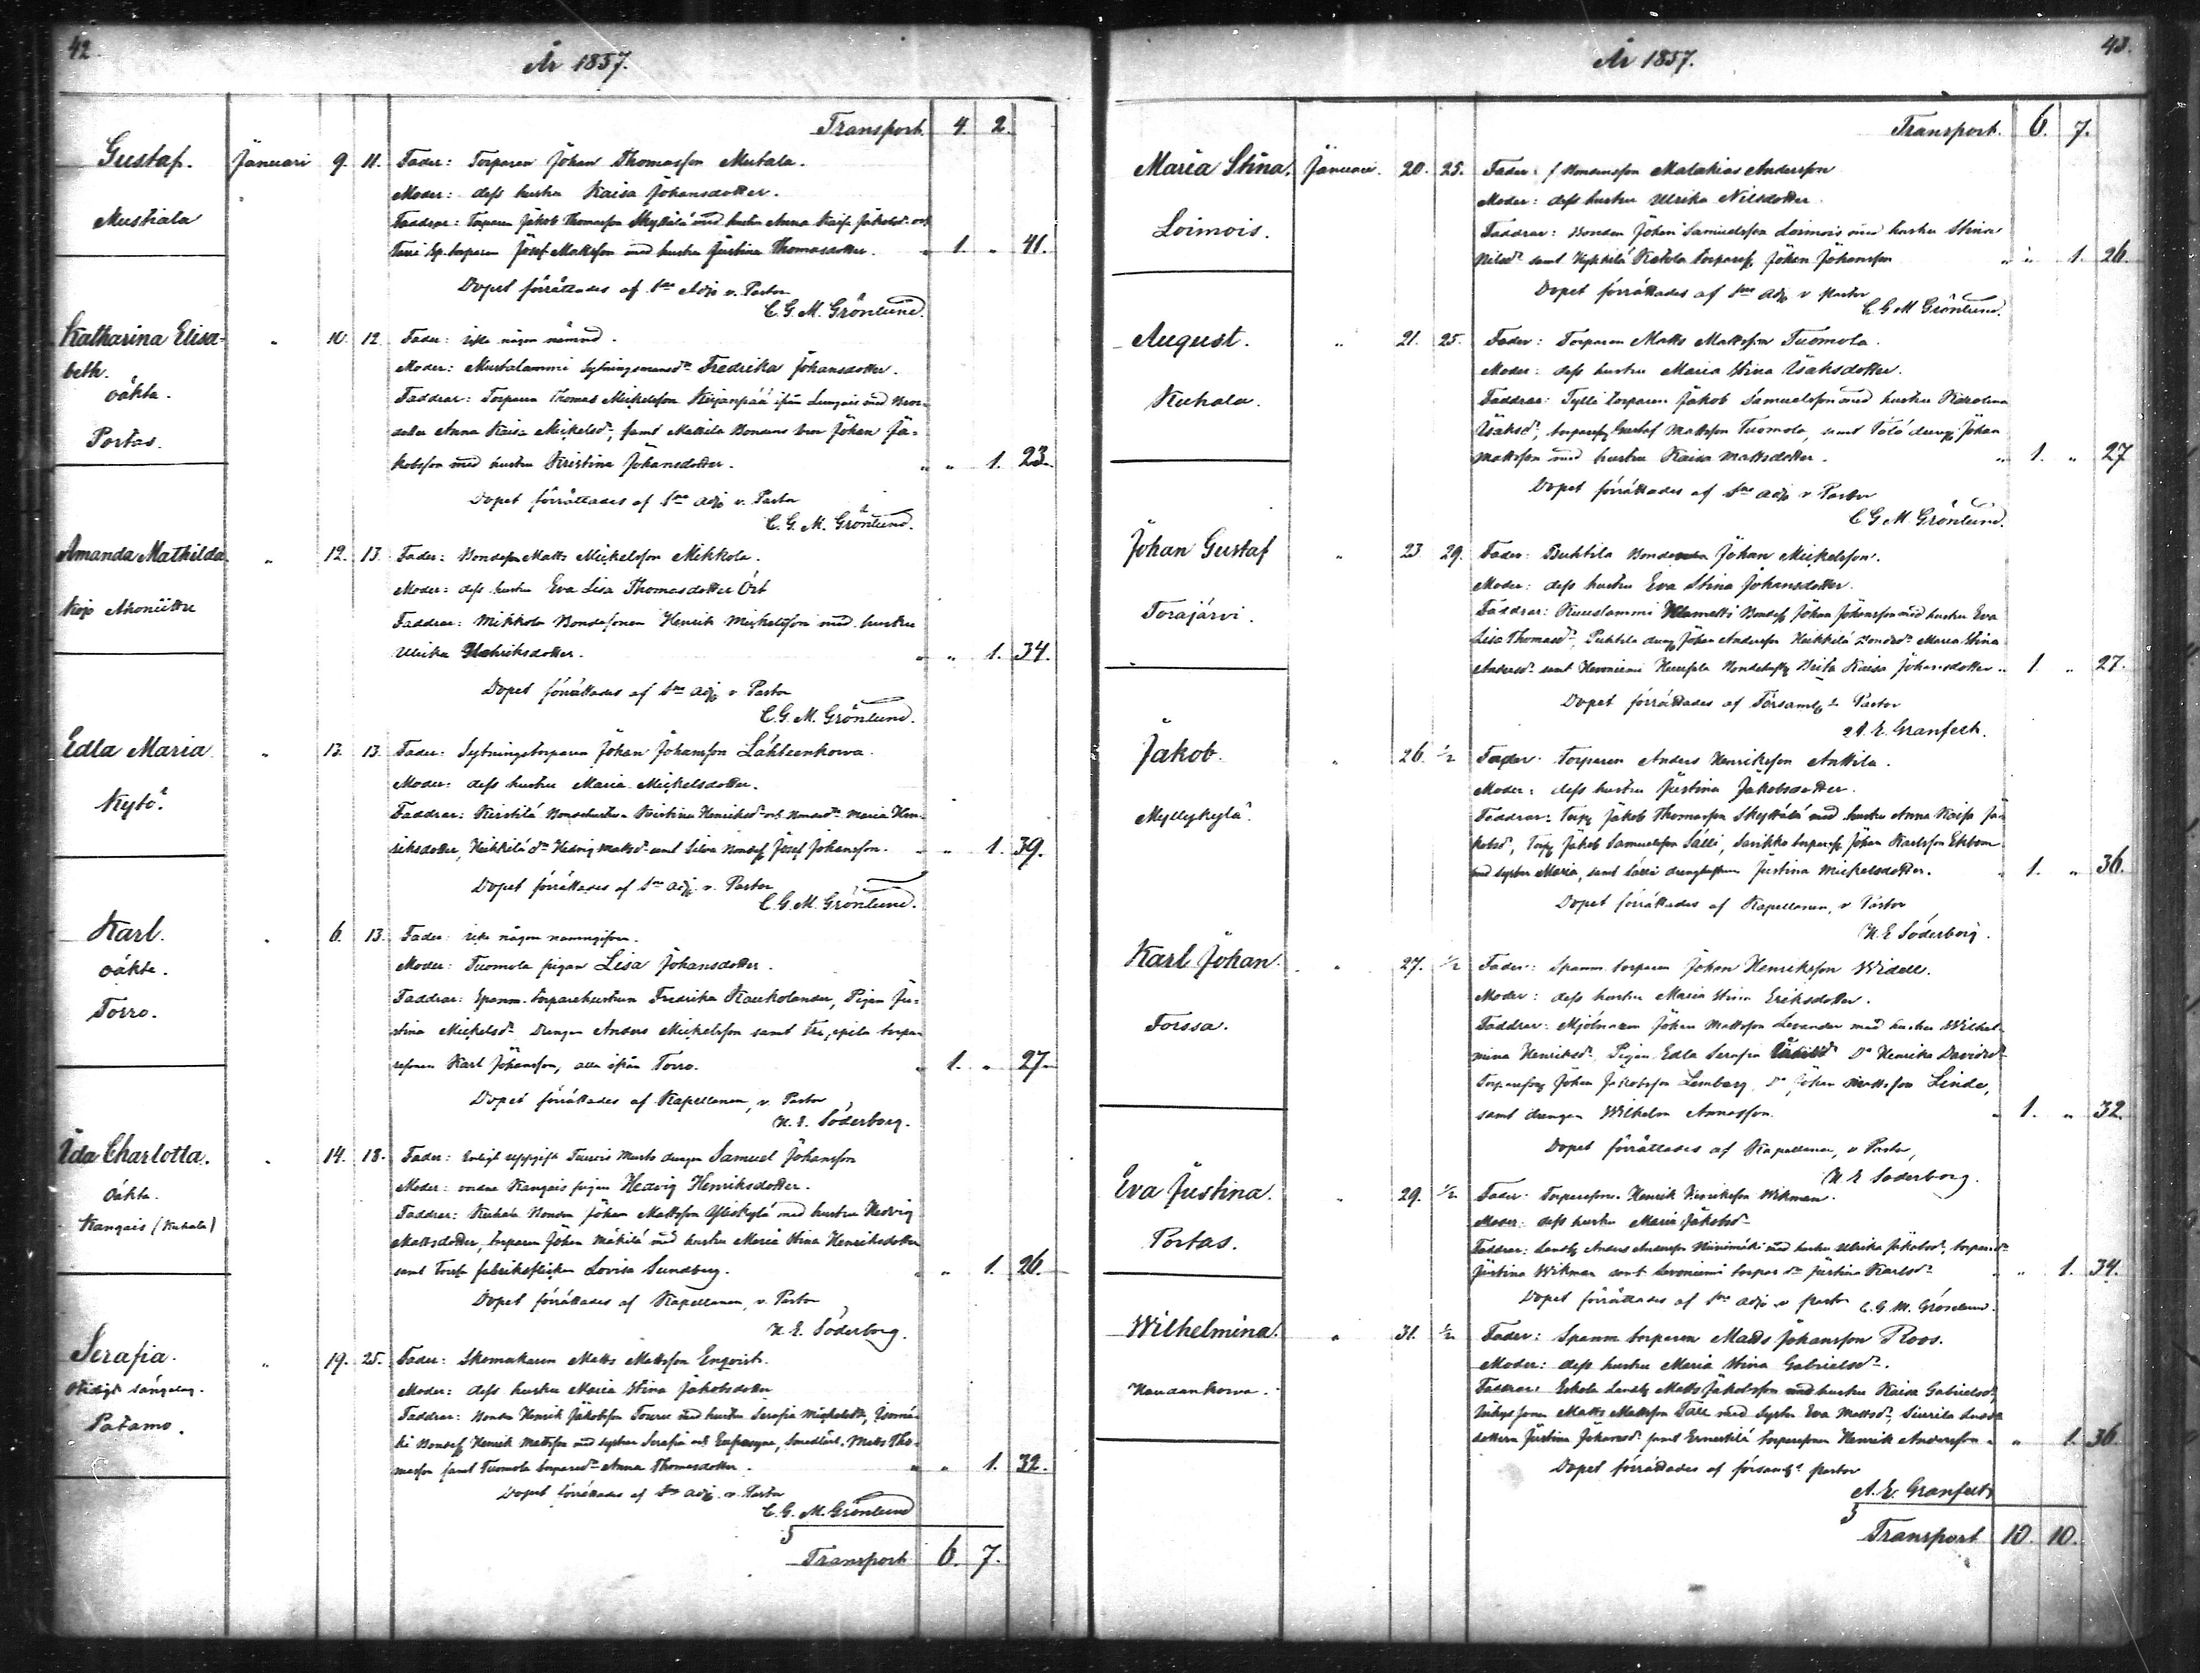 42.
År 1857.
Transport 4. 2.
Gustaf. Januari 9. 11. Fader: Torparen Johan Thomasson Mustala.
Moder: dess hustru Kaisa Johansdotter.
Mustiala
Faddrar: Torparen Jakob Thomasson Skyttälä med hustru Anna Kaisa Jakobsd. och
torparen Josef Mattsson med hustru Justina Thomasdotter. " 1. " 41.
Dopet förrättades af Adj. v. Pastor
C. G. M. Grönlund.
Katharina Elisa- " 10. 12. Fader: icke någon nämnd.
beth.
Moder: Mustalammi Sytningsmansd:r Fredrika Johansdotter.
oäkta.
Faddrar: Torparen Thomas Mickelsson ifrån med
Portas.
Anna Kaisa Mickelsd:r, samt Mattila Bondens bror Johan Ja-
kobsson med hustru Kristina Johansdotter. " " 1. 23.
Dopet förrättades af Adj. v. Pastor
C. G. M. Grönlund.
Amanda Mathilda " 12. 13. Fader: Bondes. Matts Mickelsson Mikkola.
Moder: dess hustru Eva Lisa Thomasdotter
Faddrar: Mikkola Bondesonen Henrik Mickelsson med hustru
Ulrika Henriksdotter. " " 1. 34.
Dopet förrättades af Adj. v. Pastor
C. G. M. Grönlund.
Edla Maria " 13. 13. Fader: Sytningstorparen Johan Johansson Lähteenkorwa.
Moder: dess hustru Maria Mickelsdotter.
Kylö.
Faddrar: Kirstilä Bondehustru Kristina Henriksd:r och Bonded:r Maria Hen-
riksdotter, Heikkilä d:o Hedvig Mattsd:r samt Silva Bondes. Josef Johansson. " " 1. 39.
Dopet förrättades af Adj. v. Pastor
C. G. M. Grönlund.
Karl. " 6. 13. Fader: icke någon namngifven.
oäkta.
Moder: Tuomola pigan Lisa Johansdotter.
Torro.
Faddrar: Spanm. torparehustrun Fredrika Kaukolander, Pigan Ju-
stina Mickelsd:r Drengen Anders Mickelsson samt torpa-
resonen Karl Johansson, alla ifrån Torro. " 1. " 27.
Dopet förrättades af Kapellanen, v. Pastor
N. E. Söderborg.
Ida Charlotta. " 14. 18. Fader: Enligt uppgift drengen Samuel Johansson
Oäkta.
Moder: Kangais pigan Hedvig Henriksdotter.
Kangais (Kuhala)
Faddrar: Kuhala Bonden Johan Mattsson Yliskylä med hustru Hedvig
Mattsdotter, torparen Johan Mäkilä med hustru Maria Stina Henriksdotter
samt Forssa fabriksflickan Lovisa Sundberg. " " 1. 26.
Dopet förrättades af Kapellanen, v. Pastor
N. E. Söderborg.
Serafia. " 19. 25. Fader: Skomakaren Matts Mattsson Enqvist.
Moder: dess hustru Maria Stina Jakobsdotter
Patamo.
Faddrar: Bonden Henrik Jakobsson med hustru Serafia
Bondes. Henrik Mattsson med syster Serafia och Matts Tho-
masson samt Tuomola torpared:r Anna Thomasdotter. " " 1. 32.
Dopet förrättades af Adj. v. Pastor
C. G. M. Grönlund
Transport 6. 7.
43.
År 1857.
Transport. 6. 7.
Maria Stina. Januari. 20. 25. Fader: Bondensson Malakias Andersson
Moder: dess hustru Ulrika Nilsdotter.
Loimois.
Faddrar: Bonden Johan Samuelsson Loimois med hustru Stina
Nilsd:r samt Hykkilä Ketola torpares. Johan Johansson " " 1. 26.
Dopet förrättades af Adj. v. Pastor
C. G. M. Grönlund.
August. " 21. 25. Fader: Torparen Matts Mattsson Tuomola.
Moder: dess hustru Maria Stina Isaksdotter.
Kuhala.
Faddrar: Tylli torparen Jakob Samuelsson med hustru Karolina
Isaksd:r, torpares. Gustaf Mattsson Tuomola, samt dreng. Johan
Mattsson med hustru Kaisa Mattsdotter. " 1. " 27
Dopet förrättades af Adj. v. Pastor
C. G. M. Grönlund.
Johan Gustaf " 23. 29. Fader: Puhtila Bonden Johan Mickelsson.
Moder: dess hustru Eva Stina Johansdotter.
Torajärvi.
Faddrar: Kuuslammi Bondes. Johan Johansson med hustru Eva
Lisa Thomasd:r, Puhtila dreng. Johan Andersson Heikkilä Bonded:r Maria Stina
Andersd:r samt Bondehust. Brita Kaisa Johansdotter. " 1. " 27.
Dopet förrättades af Församl:s Pastor
A. E. Granfelt.
Jakob. " 26. ½ Fader: Torparen Anders Henriksson Anttila.
Moder: dess hustru Justina Jakobsdotter.
Myllykylä.
Faddrar: Torp. Jakob Thomasson Skyttälä med hustru Anna Kaisa Ja-
kobsd:r, Torp. Jakob Samuelsson Sälli, Sarikko torpares. Johan Karlsson Ekbom
med syster Maria, samt Sälli drenghustrun Justina Mickelsdotter. " 1. " 36.
Dopet förrättades af Kapellanen, v. Pastor
N. E. Söderborg.
Karl Johan. " 27. ½ Fader: Spanm. torparen Johan Henriksson Widell.
Moder: dess hustru Maria Stina Eriksdotter.
Forssa.
Faddrar: Mjölnaren Johan Mattsson Levander med hustru Wilhel-
mina Henriksd:r Pigan Edla Serafia D:o Henrika Davidsd:r
Torpares. Johan Jakobsson Lemberg, D:o Johan Mattsson Linde,
samt drengen Wilhelm Annasson. " 1. " 32.
Dopet förrättades af Kapellanen, v. Pastor,
N. E. Söderborg.
Eva Justina. " 29. ½ Fader: Torparesonen Henrik Henriksson Wikman.
Moder: dess hustru Maria Jakobsd:r
Portas.
Faddrar: Anders Andersson Niinimäki med hustru Ulrika Jakobsd:r, torpared:r
Justina Wikman samt Levoniemi torpared:r Justina Karlsd:r " " 1. 34.
Dopet förrättades af Adj. v. Pastor C. G. M. Grönlund.
Wilhelmina. " 31. ½ Fader: Spanm. torparen Matts Johansson Roos.
Moder: dess hustru Maria Stina Gabrielsd:r.
Haudankorva.
Faddrar: Eskola Matts Jakobsson med hustru Kaisa Gabrielsd:r,
Matts Mattsson med syster Eva Mattsd:r,
dottern Justina Johansd:r samt torparesonen Henrik Andersson. " " 1. 36.
Dopet förrättades af församl:s pastor
A. E. Granfelt
Transport 10. 10.